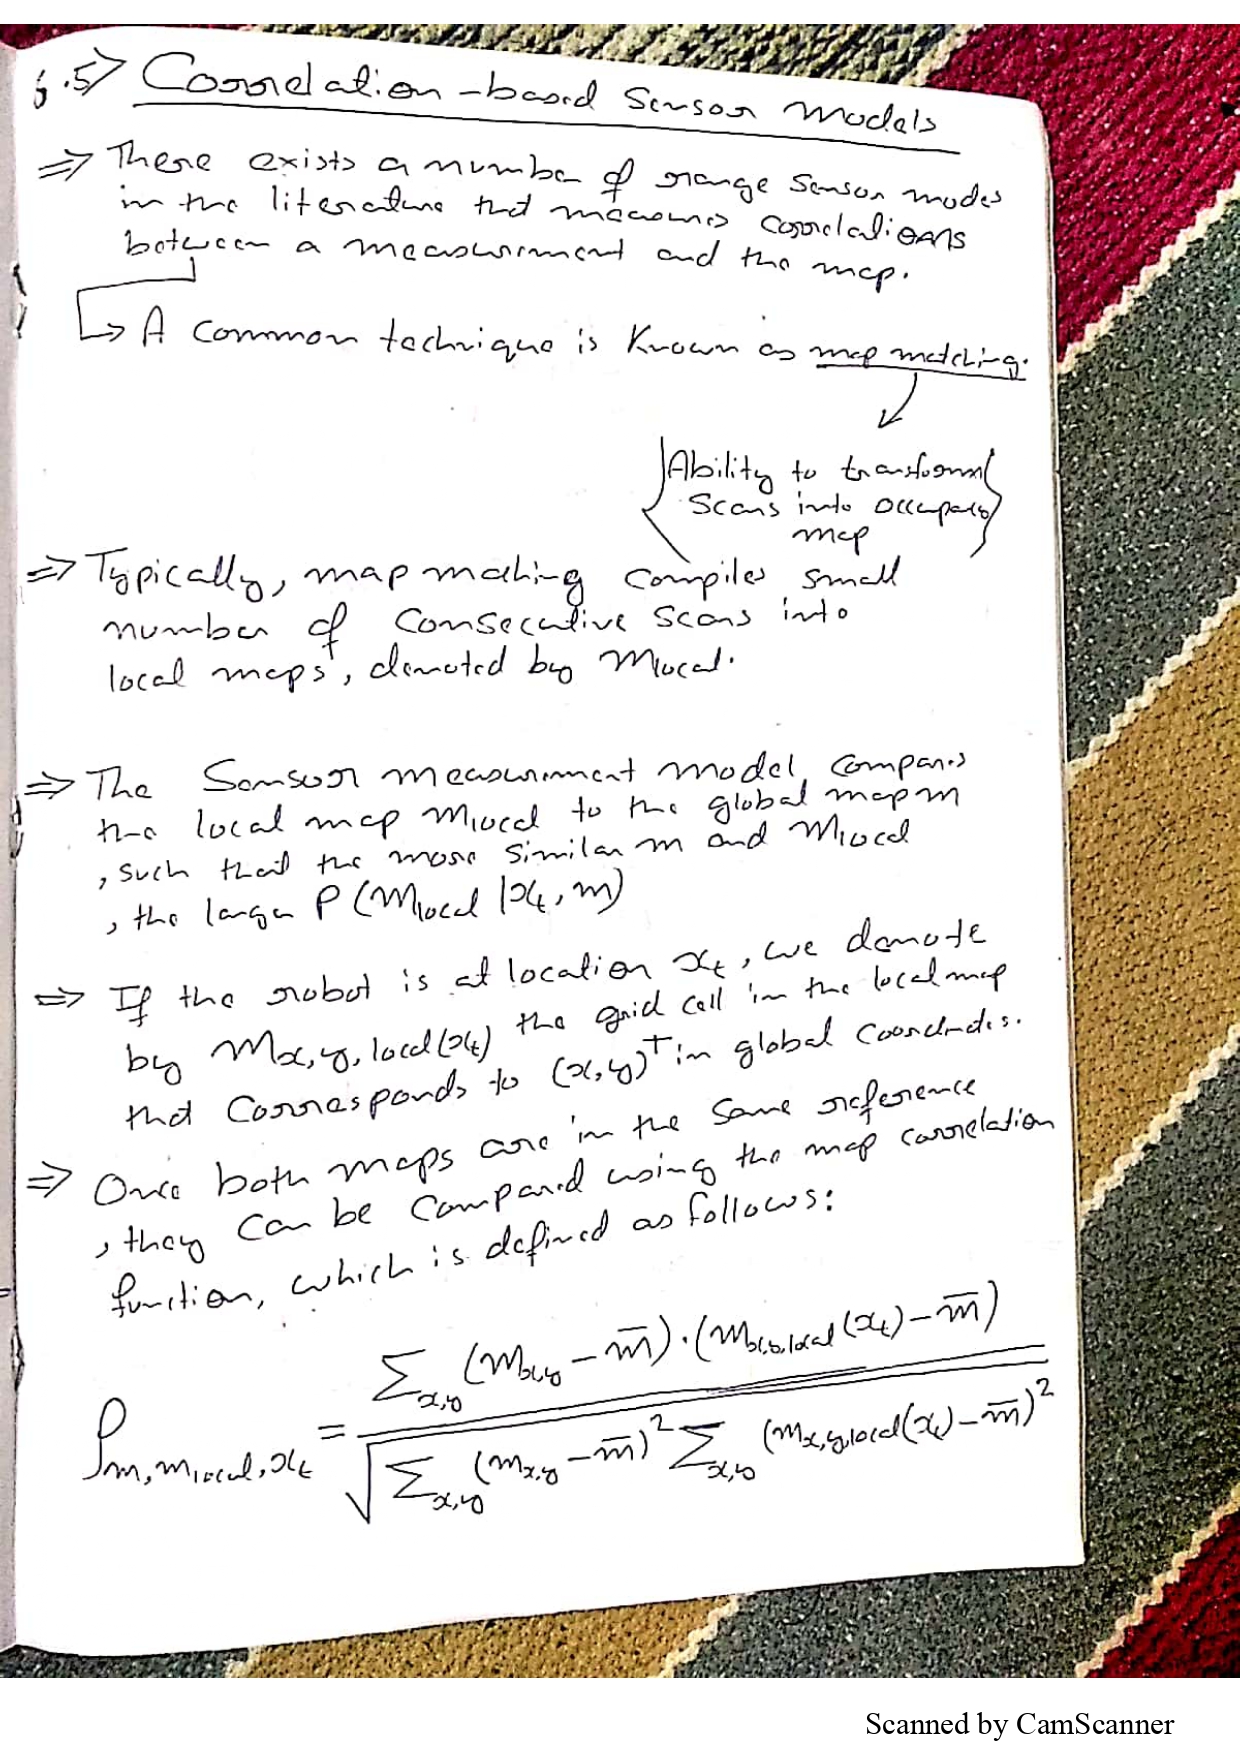 6.5> Correlation-based Sensor Models
=> There exists a number of range sensor modes
in the literature that measures correlations
between a measurement and the map.
↳ A common technique is known as map matching.
Ability to transform
scans into occupancy
map
=> Typically, map matching compiles small
number of consecutive scans into
local maps, denoted by mlocal.
=> The Sensor measurement model, compares
the local map mlocal to the global map m
, such that the more similar m and mlocal
, the larger P(mlocal | xt, m)
=> If the robot is at location xt, we denote
by mx,y,local(xt) the grid cell in the local map
that corresponds to (x,y)ᵀ in global coordinates.
=> Once both maps are in the same reference
, they can be compared using the map correlation
function, which is defined as follows:
ρm,mlocal,xt = Σx,y (mx,y − m̄).(mx,y,local(xt) − m̄) / √ Σx,y (mx,y − m̄)² Σx,y (mx,y,local(xt) − m̄)²
Scanned by CamScanner